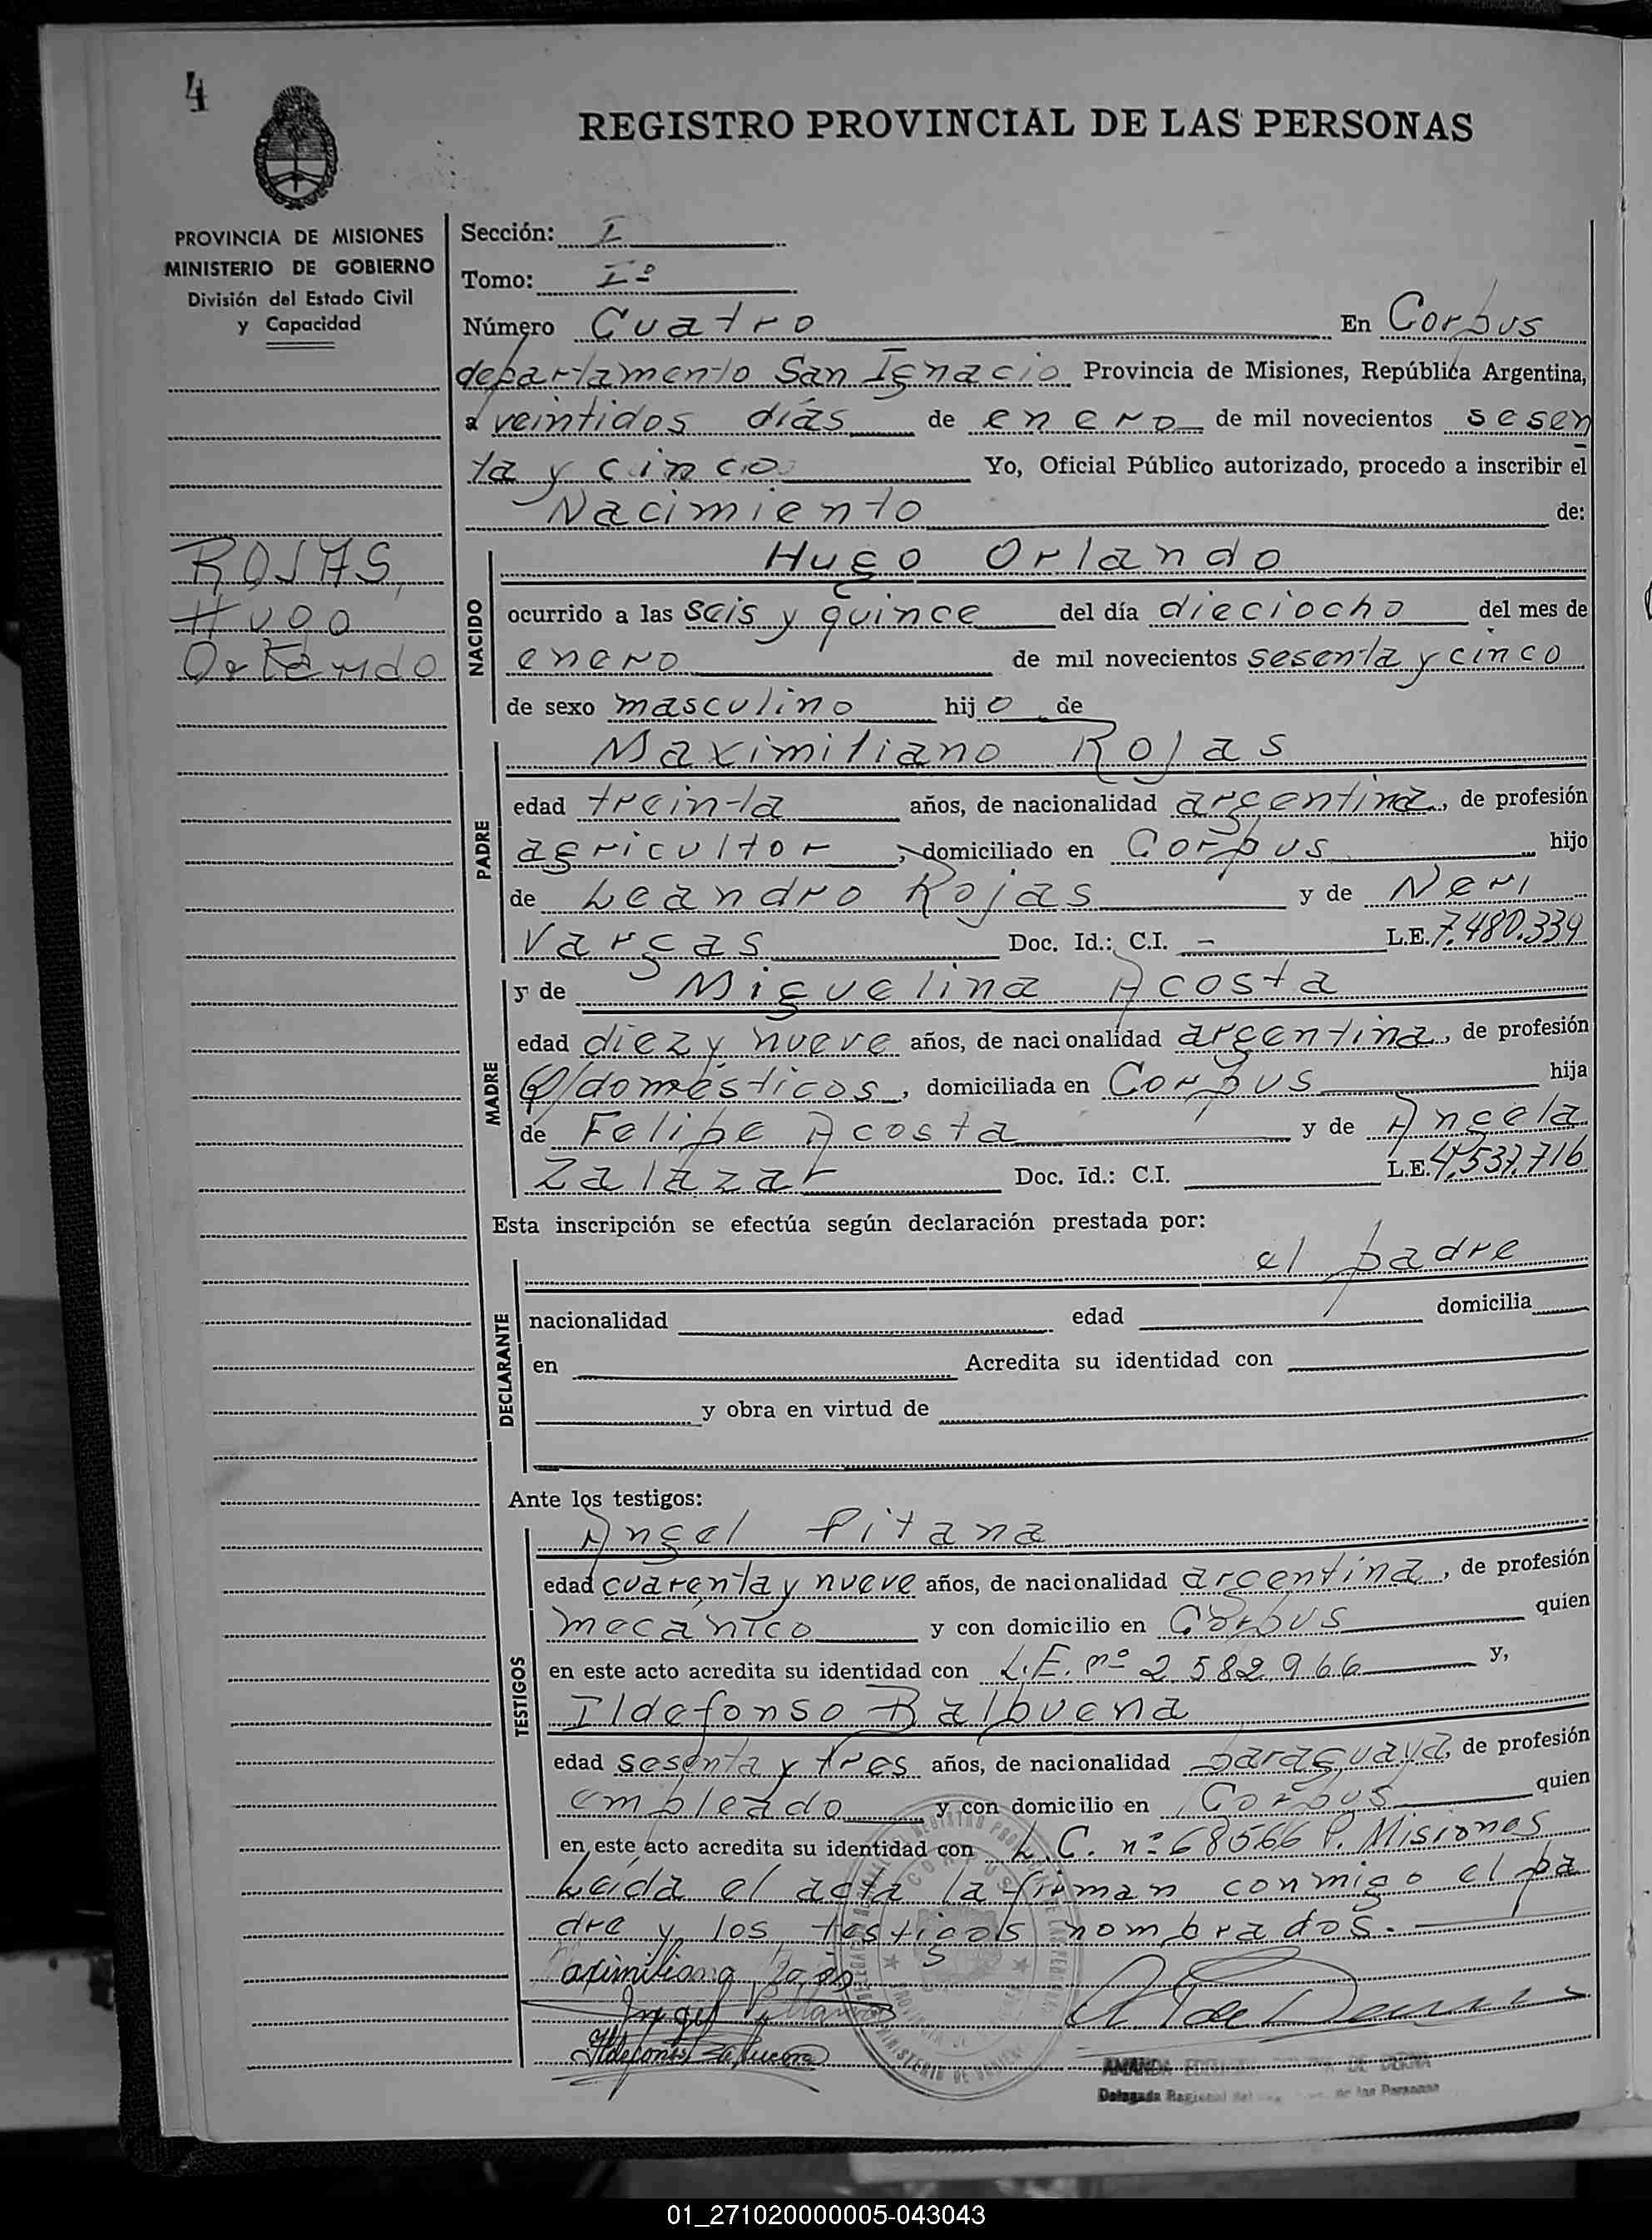 4
REGISTRO PROVINCIAL DE LAS PERSONAS
PROVINCIA DE MISIONES
MINISTERIO DE GOBIERNO
División del Estado Civil
y Capacidad
Sección: I
Tomo: Iº
Número Cuatro En Corpus
departamento San Ignacio Provincia de Misiones, República Argentina,
a veintidos días de enero de mil novecientos sesen
ta y cinco Yo, Oficial Público autorizado, procedo a inscribir el
Nacimiento de:
ROJAS,
Hugo
Orlando
NACIDO
Hugo Orlando
ocurrido a las seis y quince del día dieciocho del mes de
enero de mil novecientos sesenta y cinco
de sexo masculino hijo de
PADRE
Maximiliano Rojas
edad treinta años, de nacionalidad argentina, de profesión
agricultor, domiciliado en Corpus hijo
de Leandro Rojas y de Neri
Vargas Doc. Id.: C.I. - L.E. 7.480.339
MADRE
y de Miguelina Acosta
edad diez y nueve años, de nacionalidad argentina, de profesión
q/domésticos, domiciliada en Corpus hija
de Felipe Acosta y de Angela
Zalazar Doc. Id.: C.I. L.E. 4,537.716
Esta inscripción se efectúa según declaración prestada por:
DECLARANTE
el padre
nacionalidad edad domicilia
en Acredita su identidad con
y obra en virtud de
Ante los testigos:
TESTIGOS
Angel Pitana
edad cuarenta y nueve años, de nacionalidad argentina, de profesión
mecánico y con domicilio en Corpus quien
en este acto acredita su identidad con L.E. nº 2.582.966 y,
Ildefonso Balbuena
edad sesenta y tres años, de nacionalidad paraguaya, de profesión
empleado y con domicilio en Corpus quien
en este acto acredita su identidad con L.C. nº 68566 P. Misiones
Leída el acta la firman conmigo el pa
dre y los testigos nombrados.-
Maximiliano Rojas
Angel
Ildefonso Balbuena
AMANDA DE
Delegada Regional de las Personas
01_271020000005-043043